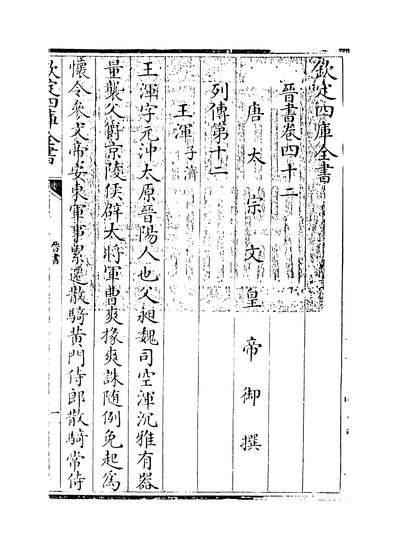 欽定四庫全書
晉書卷四十二
唐太宗文皇帝御撰
列傳第十二
王渾子濟
王渾字元沖太原晉陽人也父昶魏司空渾沉雅有器
量襲父爵京陵侯辟大將軍曹爽掾爽誅隨例免起為
懷令參文帝安東軍事累遷散騎黃門侍郎散騎常侍
欽定四庫全書
晉書
一